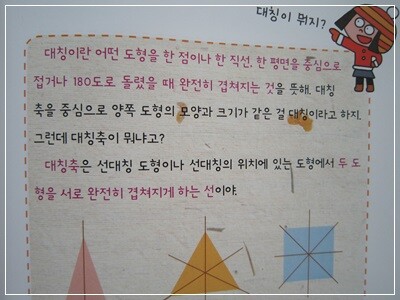 대칭이 뭐지?
대칭이란 어떤 도형을 한 점이나 한 직선, 한 평면을 중심으로
접거나 180도로 돌렸을 때 완전히 겹쳐지는 것을 뜻해. 대칭
축을 중심으로 양쪽 도형의 모양과 크기가 같은 걸 대칭이라고 하지.
그런데 대칭축이 뭐냐고?
대칭축은 선대칭 도형이나 선대칭의 위치에 있는 도형에서 두 도
형을 서로 완전히 겹쳐지게 하는 선이야.